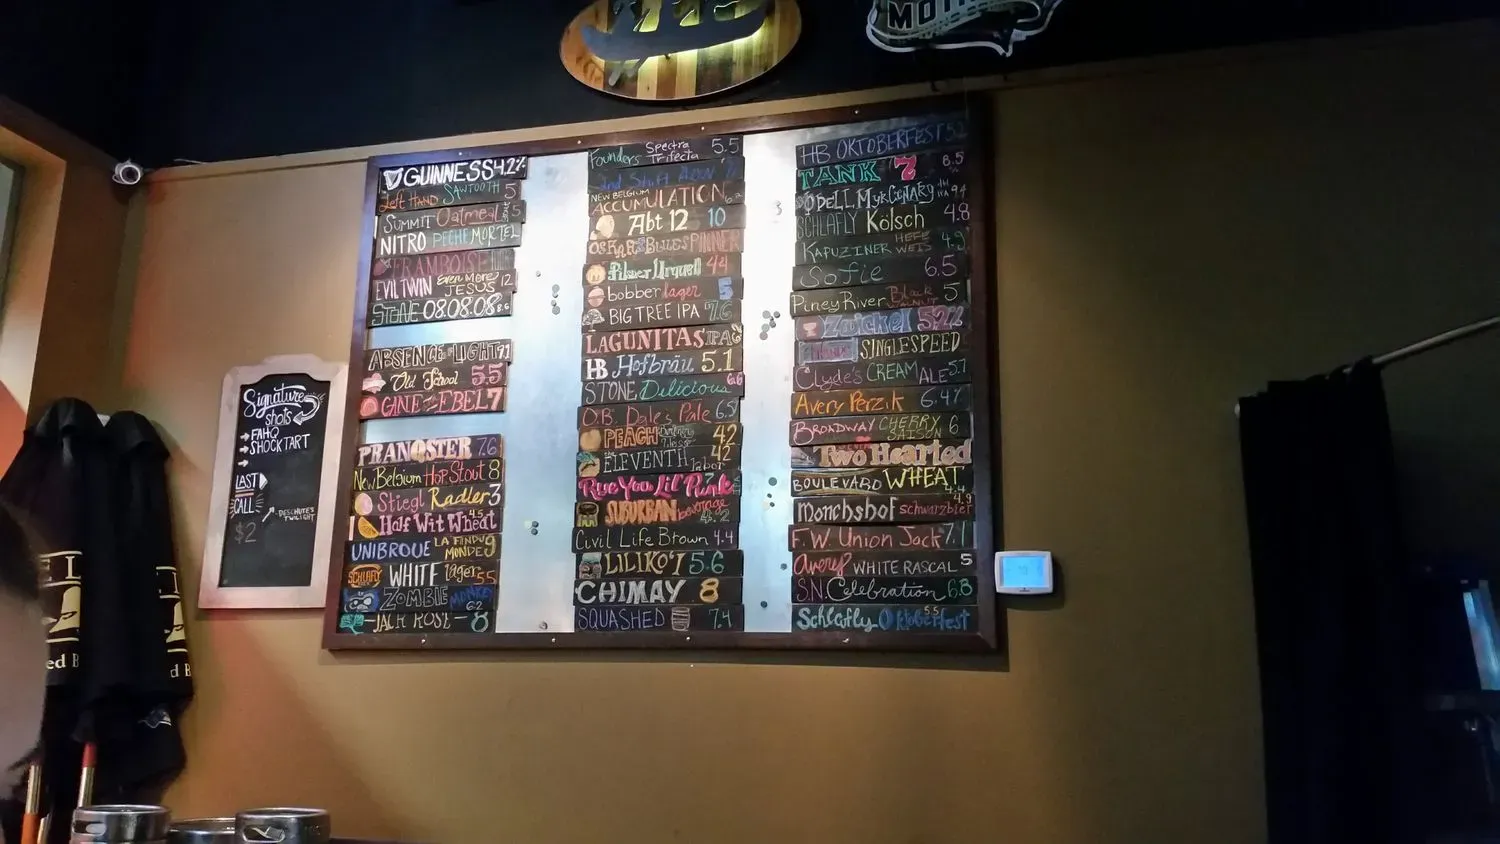 MOTHER
GUINNESS 4.2%
Left Hand SAWTOOTH 5
SUMMIT Oatmeal 5
NITRO PECHE MORTEL
FRAMBOISE
EVIL TWIN Even More JESUS 12
STONE 08.08.08 8.6
ABSENCE OF LIGHT 7.1
Old School 5.5
GINE-ZE-EBEL 7
PRANQSTER 7.6
New Belgium Hop Stout 8
Stiegl Radler 3
Half Wit Wheat 4.5
UNIBROUE LA FIN DU MONDE 9
SCHLAFLY WHITE lager 5.5
ZOMBIE MONKEY 6.2
JACK ROSE 8
Founders Spectra Trifecta 5.5
2nd Shift
NEW BELGIUM ACCUMULATION 6.2
Abt 12 10
OSKAR BLUES PINNER
Pilsner Urquell 4.4
bobber lager 5
BIG TREE IPA 7.6
LAGUNITAS IPA
HB Hofbräu 5.1
STONE Delicious 6.6
O.B. Dale's Pale 6.5
PEACH 4.2
ELEVENTH labor 4.2
Rue You Lil' Punk 7
SUBURBAN beverage 4.2
Civil Life Brown 4.4
LILIKO'I 5.6
CHIMAY 8
SQUASHED 7.4
HB OKTOBERFEST 5.2
TANK 7 8.5
ODELL Myrcenary 9.4
SCHLAFLY Kölsch 4.8
KAPUZINER HEFE WEIS 4.9
Sofie 6.5
Piney River Black WALNUT 5
Zwickel 5.2%
SINGLESPEED
Clyde's CREAM ALE 5.7
Avery Perzik 6.47
BROADWAY CHERRY SAISON 6
Two Hearted
BOULEVARD WHEAT 4.4
Monchshof schwarzbier 4.9
F.W. Union Jack 7.1
avery WHITE RASCAL 5
S.N. Celebration 6.8
Schlafly Oktoberfest 5.5
Signature shots
→ FAHQ
→ SHOCKTART
→
LAST CALL
→ DESCHUTE'S TWILIGHT
$2
ed B
d B